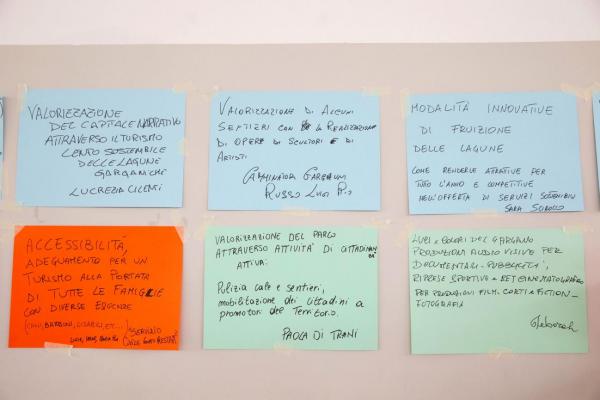 VALORIZZAZIONE
DEL CAPITALE NARRATIVO
ATTRAVERSO IL TURISMO
LENTO SOSTENIBILE
DELLE LAGUNE
GARGANICHE
LUCREZIA CILENTI
VALORIZZAZIONE DI ALCUNI
SENTIERI CON LA REALIZZAZIONE
DI OPERE DI SCULTORI E DI
ARTISTI
RUSSO LUIGI PIO
MODALITÀ INNOVATIVE
DI FRUIZIONE
DELLE LAGUNE
COME RENDERLE ATTRATIVE PER
TUTTO L'ANNO E COMPETITIVE
NELL'OFFERTA DI SERVIZI SOSTENIBILI
SARA
ACCESSIBILITÀ,
ADEGUAMENTO PER UN
TURISMO ALLA PORTATA
DI TUTTE LE FAMIGLIE
CON DIVERSE ESIGENZE
(CANI, BAMBINI, DISABILI, ETC...)
VALORIZZAZIONE DEL PARCO
ATTRAVERSO ATTIVITÀ DI CITTADINANZA
ATTIVA:
Pulizia cale e sentieri,
mobilitazione dei cittadini a
promotori del Territorio.
PAOLA DI TRANI
LUCI e COLORI DEL GARGANO
PRODUZIONI AUDIO VISIVE PER
DOCUMENTARI - PUBBLICITÀ,
RIPRESE SPORTIVE e SET CINEMATOGRAFICO
PER PRODUZIONI FILM-CORTI e FICTION-
FOTOGRAFIA
Deborah